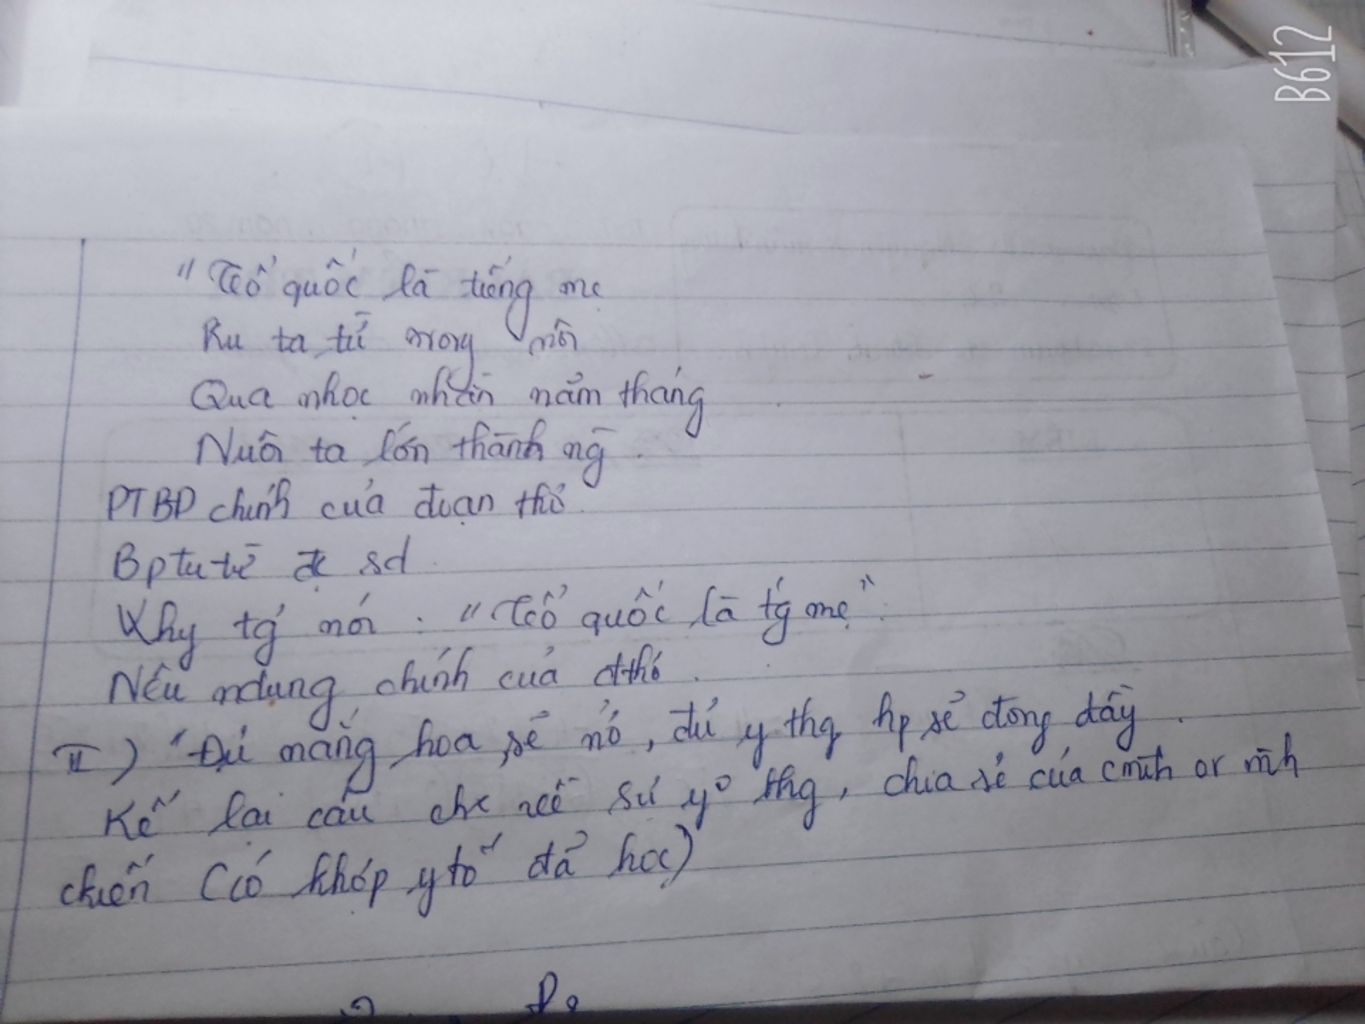 "Tổ quốc là tiếng mẹ
Ru ta từ trong nôi
Qua nhọc nhằn năm tháng
Nuôi ta lớn thành ng̀.
PTBĐ chính của đoạn thơ.
Bptu từ đc sd.
Why tg nói : "Tổ quốc là tg mẹ".
Nêu ndung chính của đthơ.
II) "Đủ nắng hoa sẽ nở, đủ y thg hp sẽ đong đầy.
Kể lại câu chc về sự yo thg, chia sẻ của cmih or mih
chiến (có khớp ytố đã học)
B612